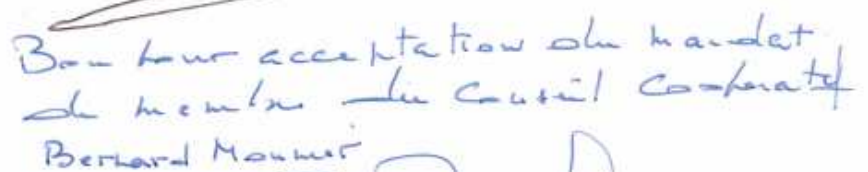 Bon pour acceptation du mandat
de membre du Conseil Coopératif
Bernard Monnier